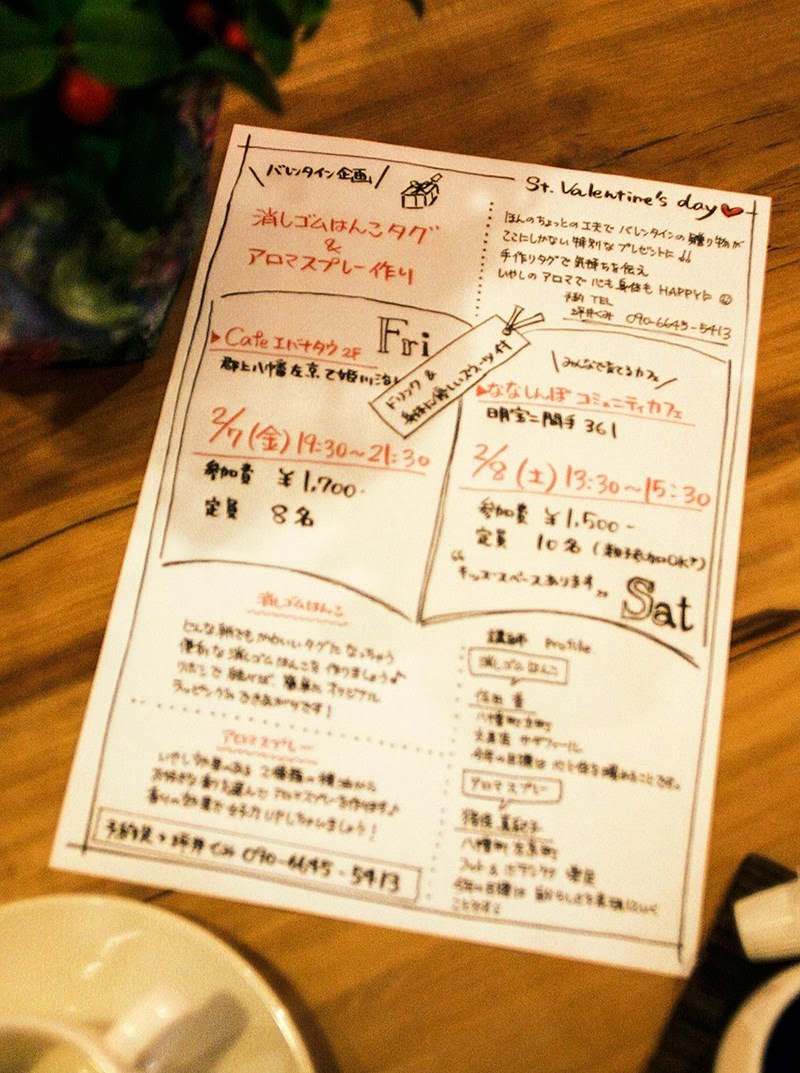 バレンタイン企画
St. Valentine's day
消しゴムはんこタグ
&
アロマスプレー作り
ほんのちょっとの工夫で バレンタインの贈り物が
ここにしかない 特別な プレゼントに
手作りタグで 気持ちを伝え
いやしの アロマで 心も身体も HAPPYに
予約 TEL
坪井くみ 090-6645-5413
Fri
Cafe エバナタウ 2F
郡上八幡左京で
2/7 (金) 19:30〜21:30
参加費 ¥1,700-
定員 8名
ドリンク &
身体に優しいスイーツ付
みんなで育てるカフェ
ななしんぼ コミュニティカフェ
明宝二間手 361
2/8 (土) 13:30〜15:30
参加費 ¥1,500-
定員 10名 (親子参加OK)
"キッズスペースあります"
Sat
消しゴムはんこ
どんな紙でもかわいいタグに なっちゃう
便利な消しゴムはんこを 作りましょう♪
リボンで 結べば、簡単に オリジナル
ラッピングの できあがりです!
アロマスプレー
いやし効果のある 2種類の精油から
お好きな香りを選んで アロマスプレーを作ります♪
香りの効果で いやしちゃいましょう!
予約先 坪井くみ 090-6645-5413
講師 Profile
消しゴムはんこ
八幡町
今年の目標は 心と体を暖めることです。
アロマスプレー
八幡町左京町
今年の目標は
ことです